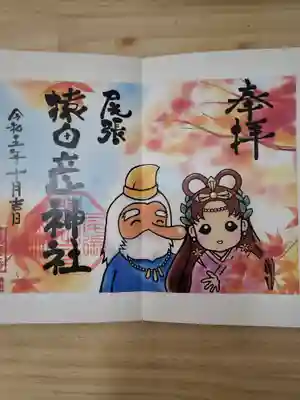 奉拝
尾張
猿田彦神社
令和五年十一月吉日